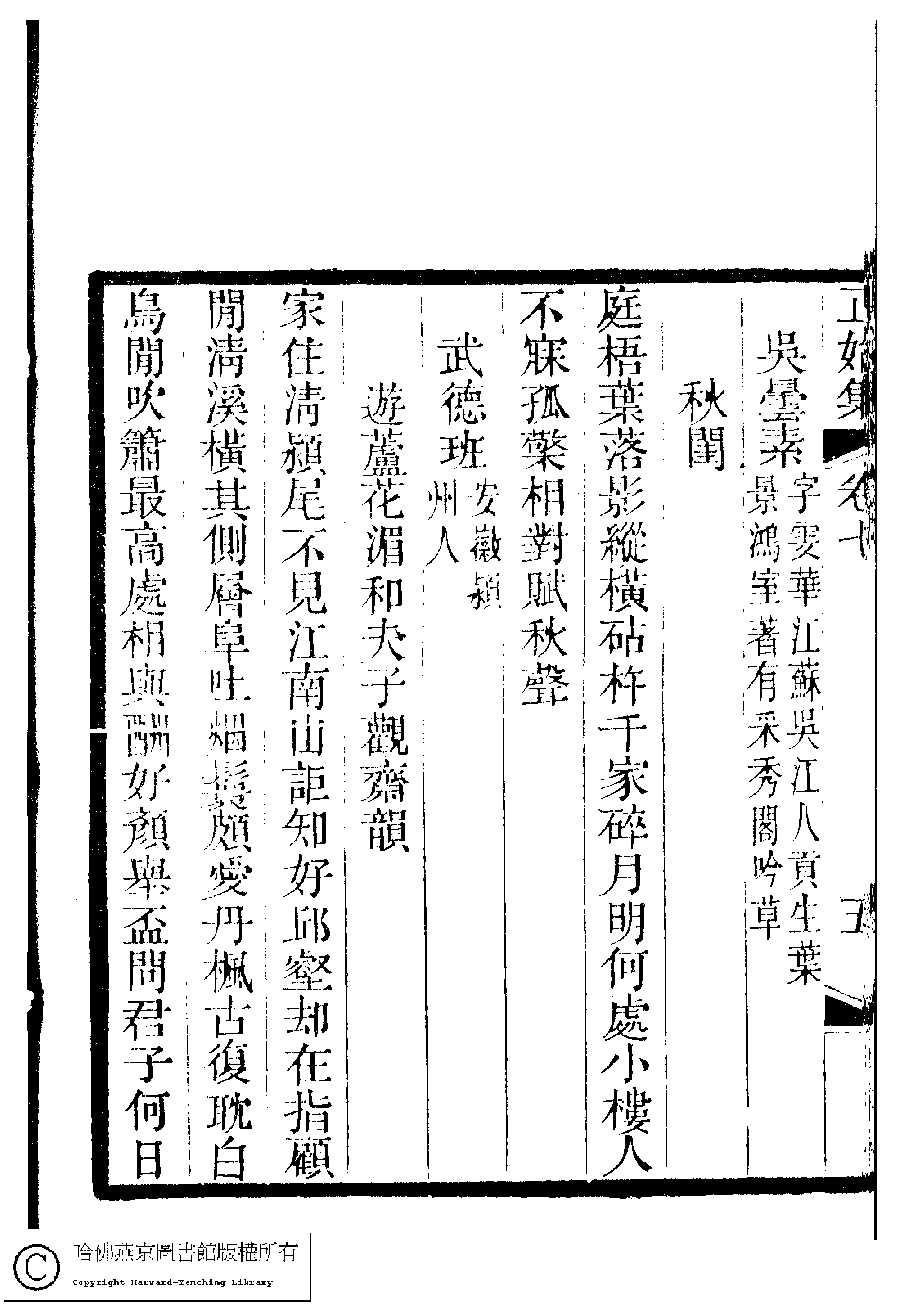 正始集 卷十 五
吳曇素 字雯華江蘇吳江人貢生葉
景鴻室著有采秀閣吟草
秋閨
庭梧葉落影縱橫砧杵千家碎月明何處小樓人
不寐孤檠相對賦秋聲
武德班 安徽潁
州人
遊蘆花湄和夫子觀齋韻
家住清潁尾不見江南山詎知好邱壑却在指顧
閒清溪橫其側層阜吐煙鬟頗愛丹楓古復耽白
鳥閒吹簫最高處相與酬好顏舉盃問君子何日
哈佛燕京圖書館版權所有
Copyright Harvard-Yenching Library